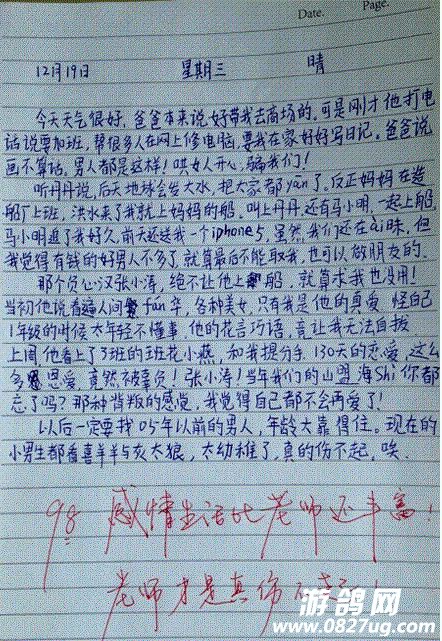 Date.
Page.
12月19日 星期三 晴
今天天气很好,爸爸本来说好带我去商场的,可是刚才他打电
话说要加班,帮很多人在网上修电脑,要我在家好好写日记。爸爸说
画不算话,男人都是这样!哄女人开心,骗我们!
听丹丹说,后天地球会发大水,把大家都yān了,反正妈妈在造
船厂上班,洪水来了我就上妈妈的船。叫上丹丹,还有马小明,一起上船,
马小明追了我好久,前天还送我一个iphone5,虽然我们还在ài昧,但
我觉得有钱的好男人不多了,就算最后不能取我,也可以做朋友的.
那个负心汉张小涛,绝不让他上船,就算求我也没用!
当初他说看遍人间fán华,各种美女,只有我是他的真爱 怪自己
1年级的时候太年轻不懂事,他的花言巧语,竟让我无法自拔
上周他看上了3班的班花小燕,和我提分手,130天的恋爱,这么
多恩爱,竟然被辜负!张小涛!当年我们的山盟海Shi你都
忘了吗?那种背叛的感觉,我觉得自己都不会再爱了!
以后一定要找05年以前的男人,年龄大靠得住。现在的
小男生都看喜羊羊与灰太狼,太幼稚了,真的伤不起,唉.
98 感情生活比老师还丰富!
老师才是真伤不起!
游鸽网
www.0827ug.com